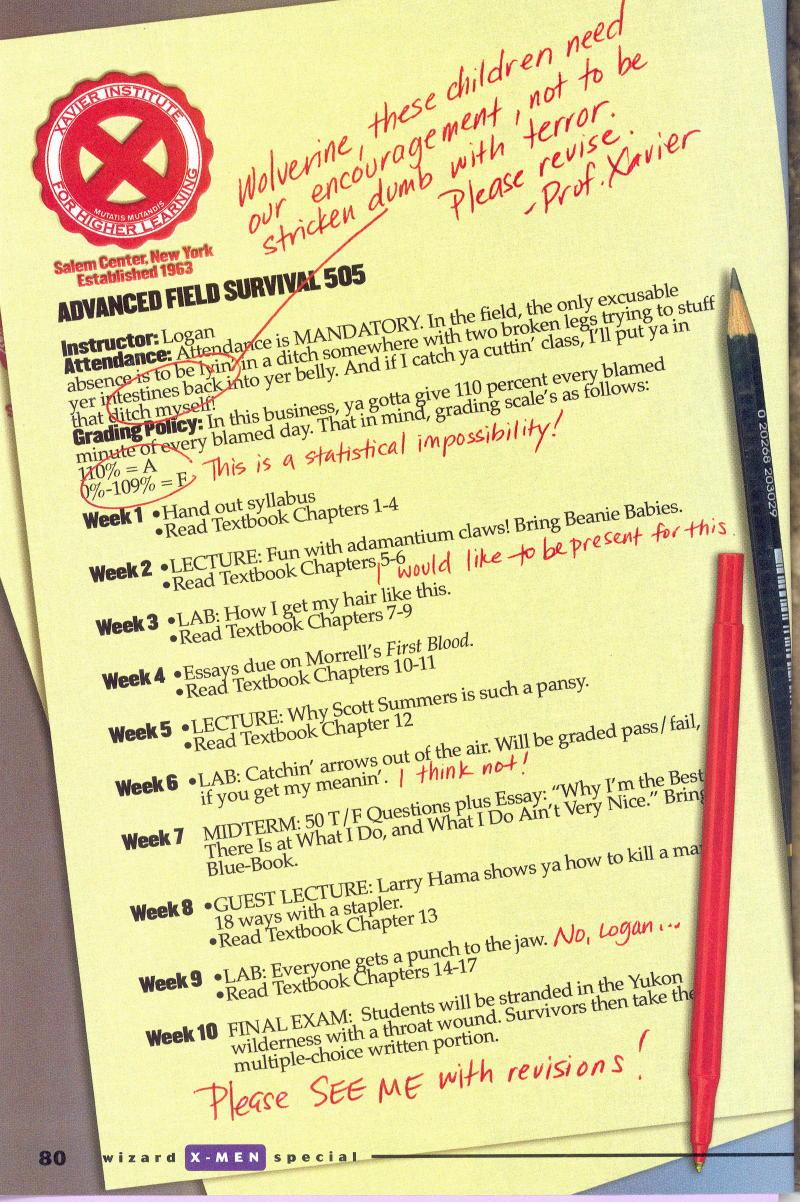 Wolverine, these children need
our encouragement, not to be
stricken dumb with terror.
Please revise.
-Prof. Xavier
XAVIER INSTITUTE
FOR HIGHER LEARNING
MUTATIS MUTANDIS
Salem Center, New York
Established 1963
ADVANCED FIELD SURVIVAL 505
Instructor: Logan
Attendance: Attendance is MANDATORY. In the field, the only excusable
absence is to be lyin' in a ditch somewhere with two broken legs trying to stuff
yer intestines back into yer belly. And if I catch ya cuttin' class, I'll put ya in
that ditch myself!
Grading Policy: In this business, ya gotta give 110 percent every blamed
minute of every blamed day. That in mind, grading scale's as follows:
110% = A
0%-109% = F
This is a statistical impossibility!
Week 1 •Hand out syllabus
•Read Textbook Chapters 1-4
Week 2 •LECTURE: Fun with adamantium claws! Bring Beanie Babies.
•Read Textbook Chapters 5-6
I would like to be present for this.
Week 3 •LAB: How I get my hair like this.
•Read Textbook Chapters 7-9
Week 4 •Essays due on Morrell's First Blood.
•Read Textbook Chapters 10-11
Week 5 •LECTURE: Why Scott Summers is such a pansy.
•Read Textbook Chapter 12
Week 6 •LAB: Catchin' arrows out of the air. Will be graded pass/fail,
if you get my meanin'. I think not!
Week 7 MIDTERM: 50 T/F Questions plus Essay: "Why I'm the Best
There Is at What I Do, and What I Do Ain't Very Nice." Bring
Blue-Book.
Week 8 •GUEST LECTURE: Larry Hama shows ya how to kill a
18 ways with a stapler.
•Read Textbook Chapter 13
Week 9 •LAB: Everyone gets a punch to the jaw. No, Logan...
•Read Textbook Chapters 14-17
Week 10 FINAL EXAM: Students will be stranded in the Yukon
wilderness with a throat wound. Survivors then take the
multiple-choice written portion.
Please SEE ME with revisions!
0 20268 203029
80 wizard X-MEN special